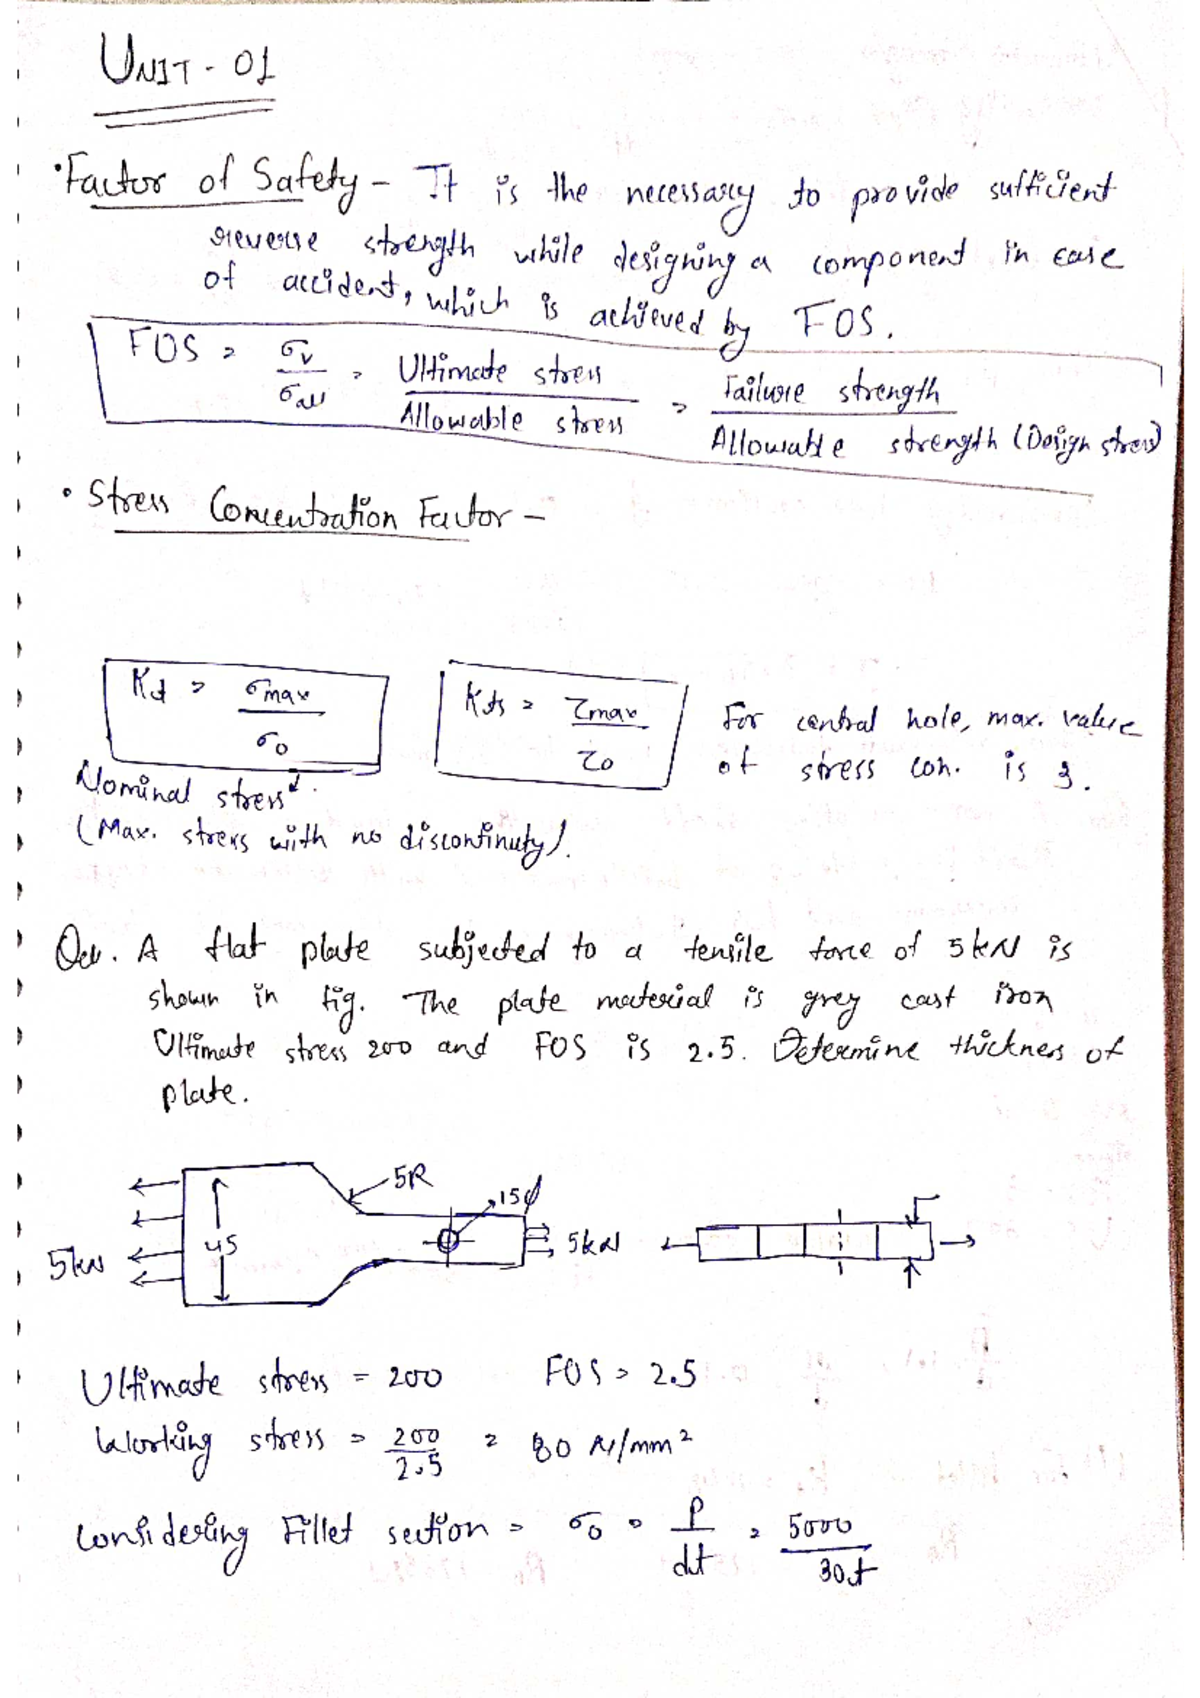 UNIT - 01
• Factor of Safety - It is the necessary to provide sufficient
reverse strength while designing a component in case
of accident, which is achieved by FOS.
FOS = σv/σall = Ultimate stress/Allowable stress = Failure strength/Allowable strength (Design stress)
• Stress Concentration Factor -
Kt = σmax/σo
Kts = τmax/τo
For central hole, max. value
of stress con. is 3.
Nominal stress
(Max. stress with no discontinuty).
Que. A flat plate subjected to a tensile force of 5kN is
shown in fig. The plate material is grey cast iron
Ultimate stress 200 and FOS is 2.5. Determine thickness of
plate.
5R
15φ
45
5kN
5kN
Ultimate stress = 200 FOS = 2.5
Working stress = 200/2.5 = 80 N/mm²
Considering Fillet section = σo = P/dt = 5000/30t